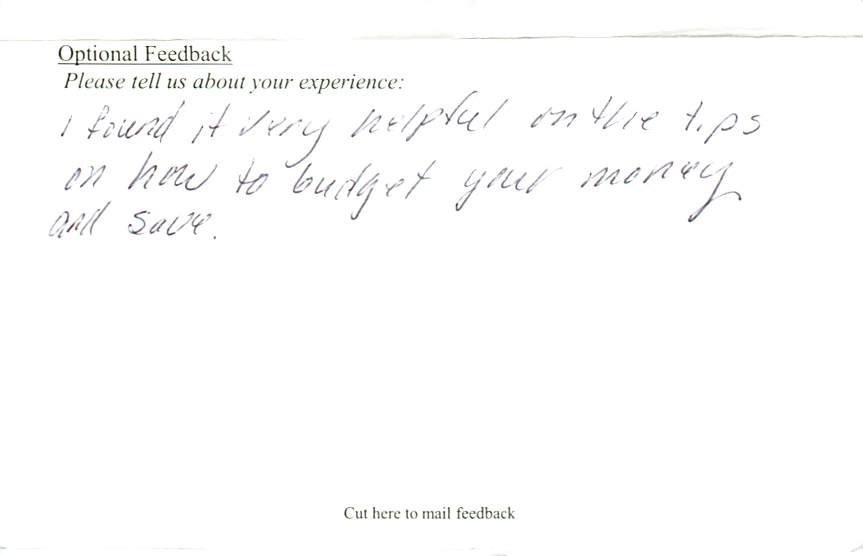 Optional Feedback
Please tell us about your experience:
I found it very helpful on the tips
on how to budget your money
and save.
Cut here to mail feedback